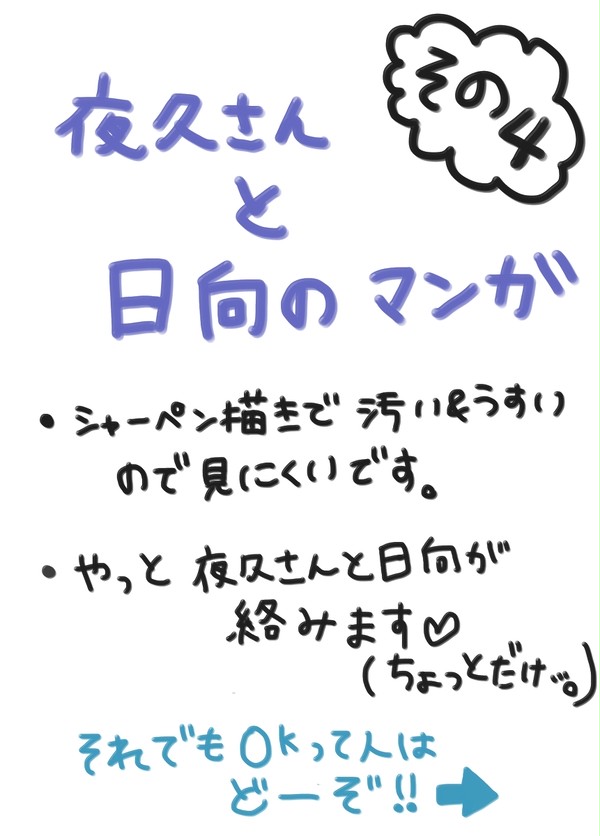 その4
夜久さん
と
日向のマンガ
・シャーペン描きで汚い&うすい
ので見にくいです。
・やっと夜久さんと日向が
絡みます♡
(ちょっとだけ…。)
それでもOKって人は
どーぞ!!➡